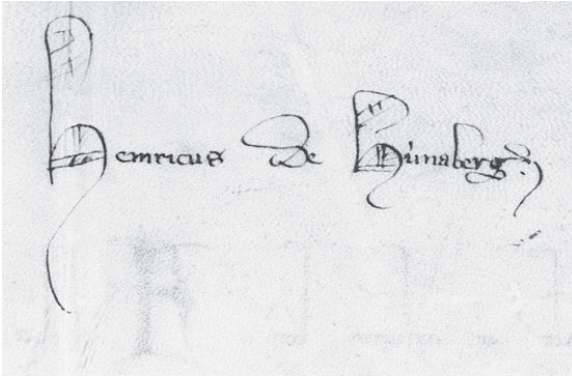 Henricus de Hünaberg